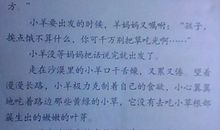 方。”
小羊要出发的时候，羊妈妈又嘱咐：“孩子，
挨点饿不算什么，你可千万别把草吃光啊……”
小羊没等妈妈把话说完就出发了。
走在沙漠里的小羊口干舌燥，又累又倦。望着
漫漫长路，小羊极力克制着自己的食欲，小心翼翼
地吃着路边那些黄绿的小草，它没有去吃小草根部
簇生出的嫩嫩的叶芽。